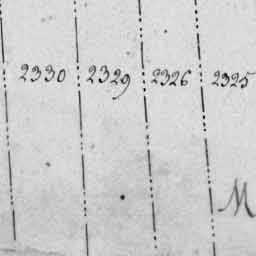 2330 2329 2326 2325
M